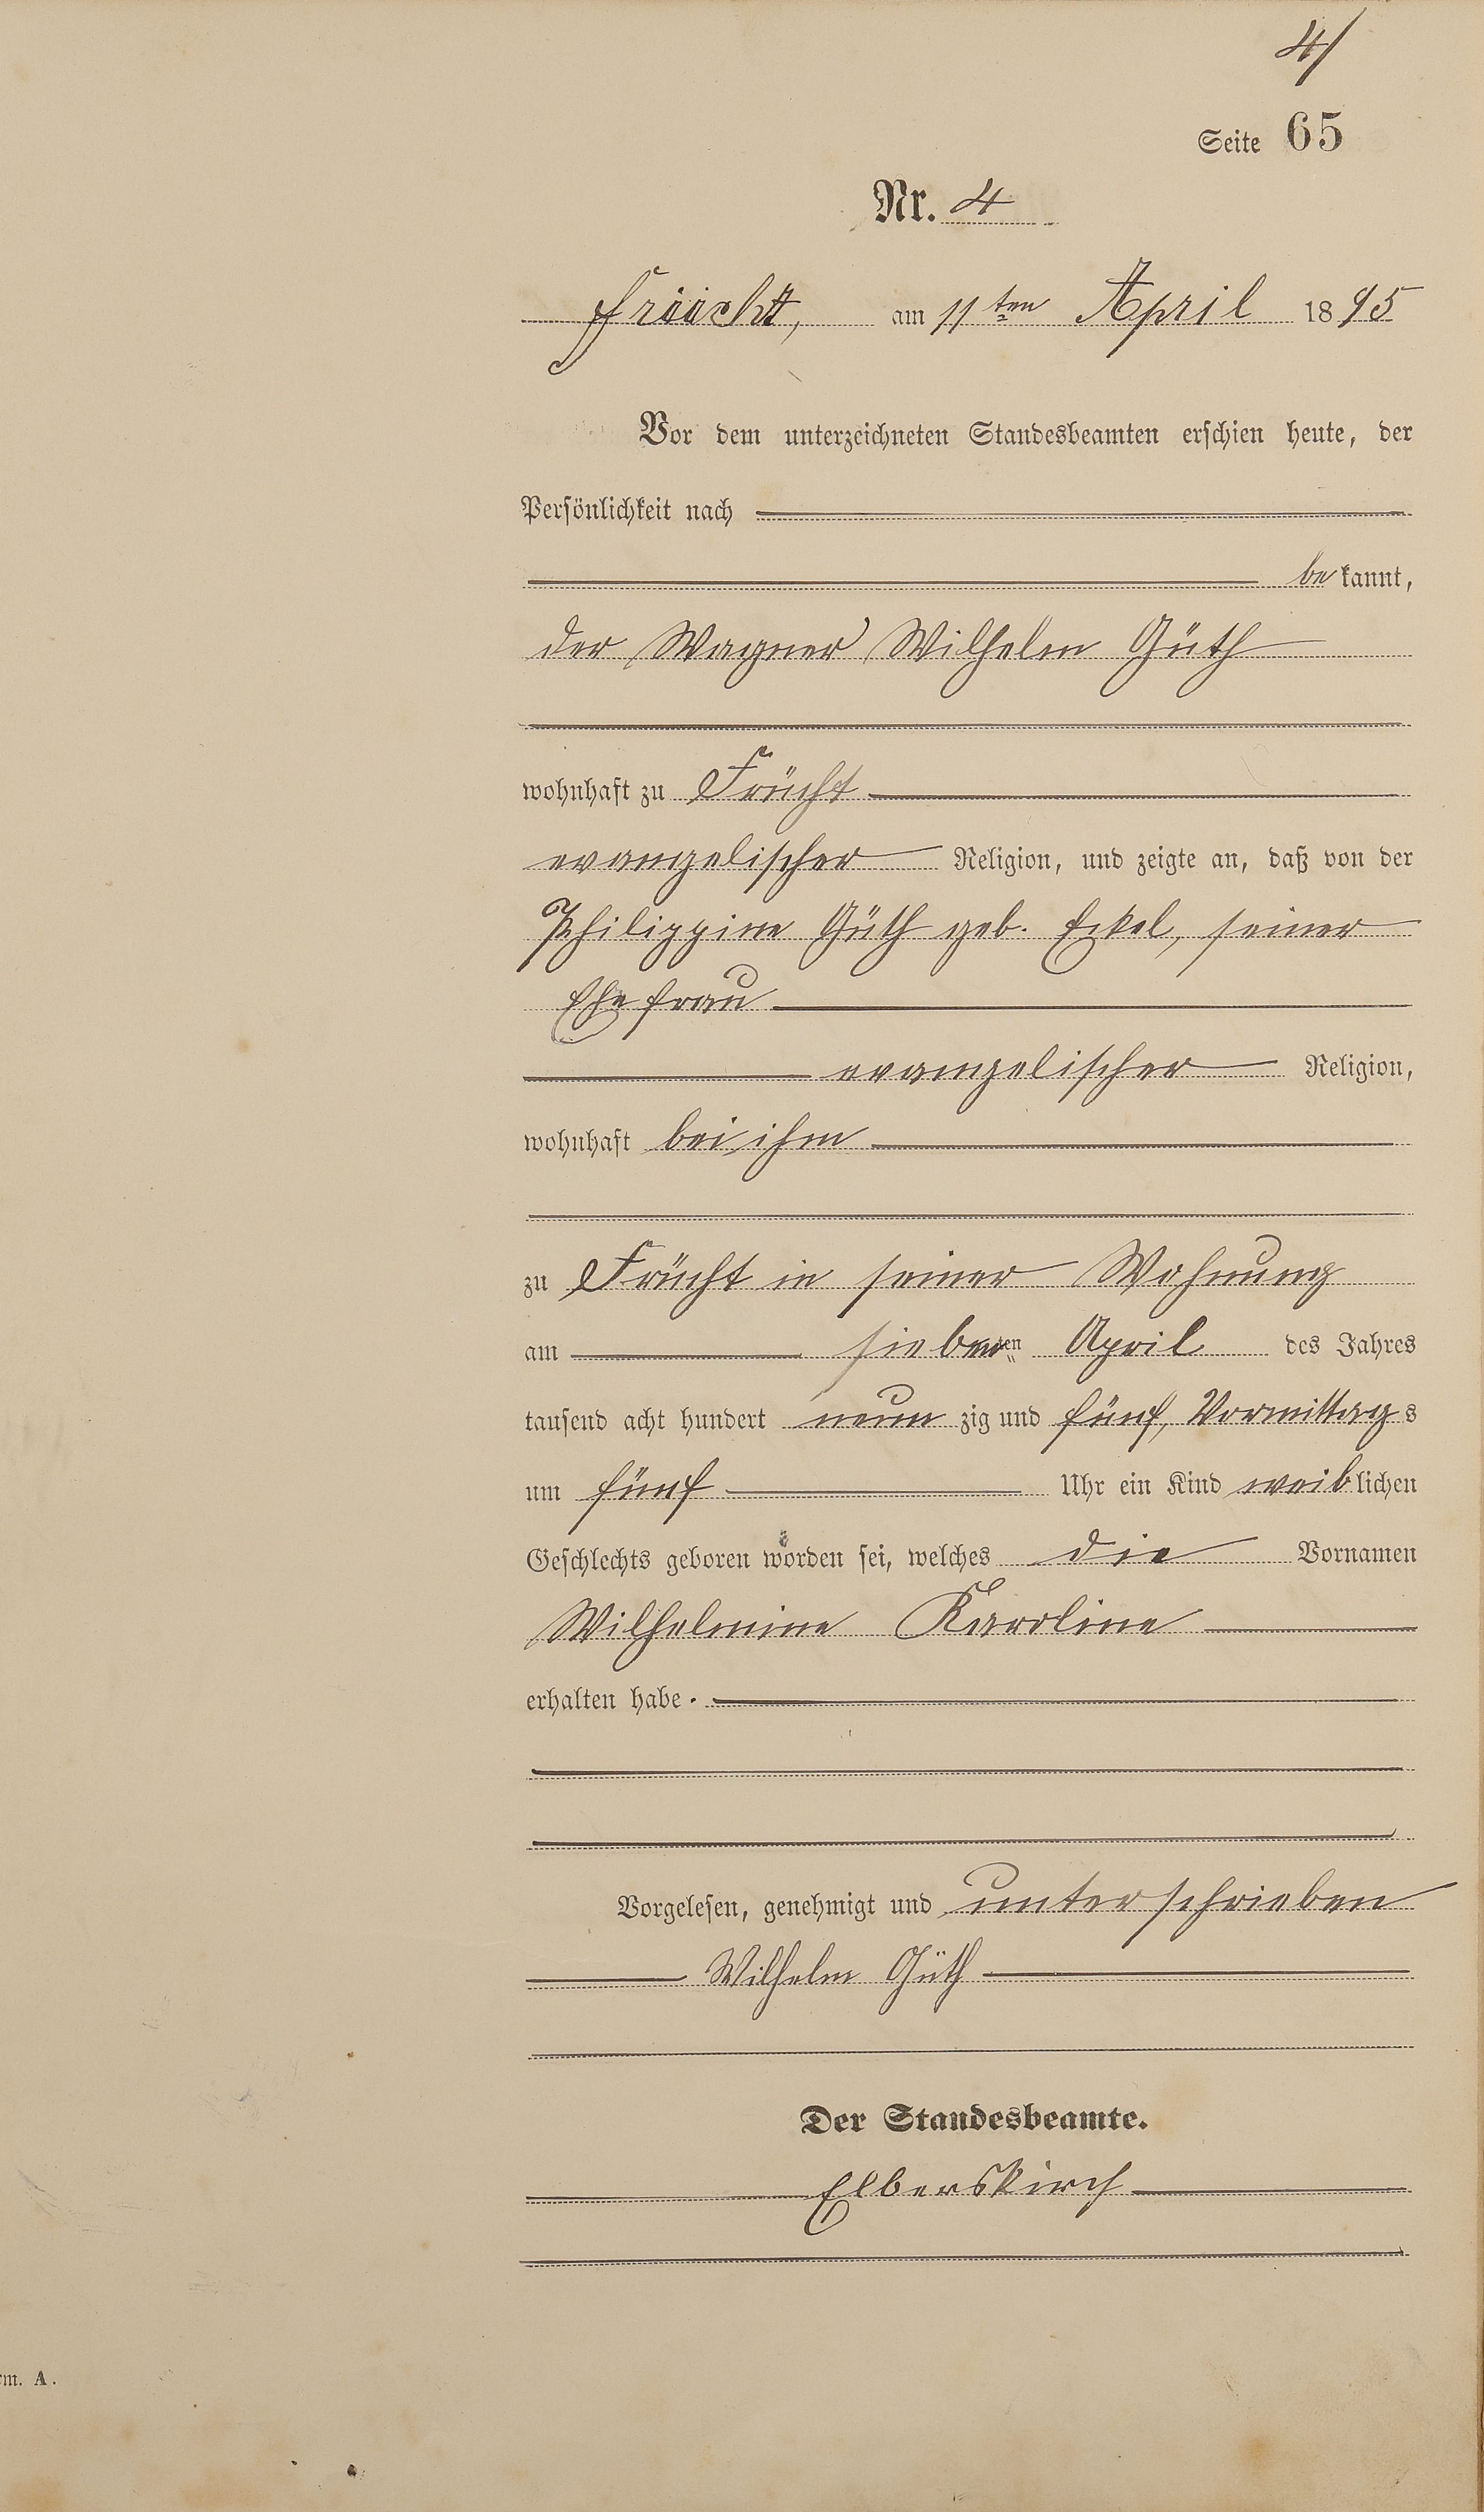 4/
Seite 65
Nr. 4
Früücht, am 11ten April 1895
Vor dem unterzeichneten Standesbeamten erschien heute, der
Persönlichkeit nach
bekannt,
der Wagner Wilhelm Güth
wohnhaft zu Frücht
evangelischer Religion, und zeigte an, daß von der
Philippine Güth geb. Eckel, seiner
Ehefrau
evangelischer Religion,
wohnhaft bei ihm
zu Frücht in seiner Wohnung
am siebenten April des Jahres
tausend acht hundert neun zig und fünf, Vormittags
um fünf Uhr ein Kind weiblichen
Geschlechts geboren worden sei, welches die Vornamen
Wilhelmine Karoline
erhalten habe.
Vorgelesen, genehmigt und unterschrieben
Wilhelm Güth
Der Standesbeamte.
Elberskirch
rm. A.